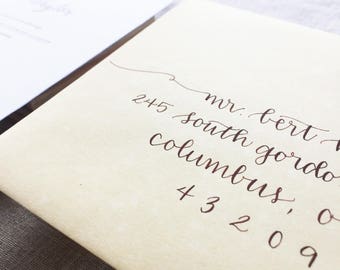 mr. bert
245 south gordo
columbus, o
43209